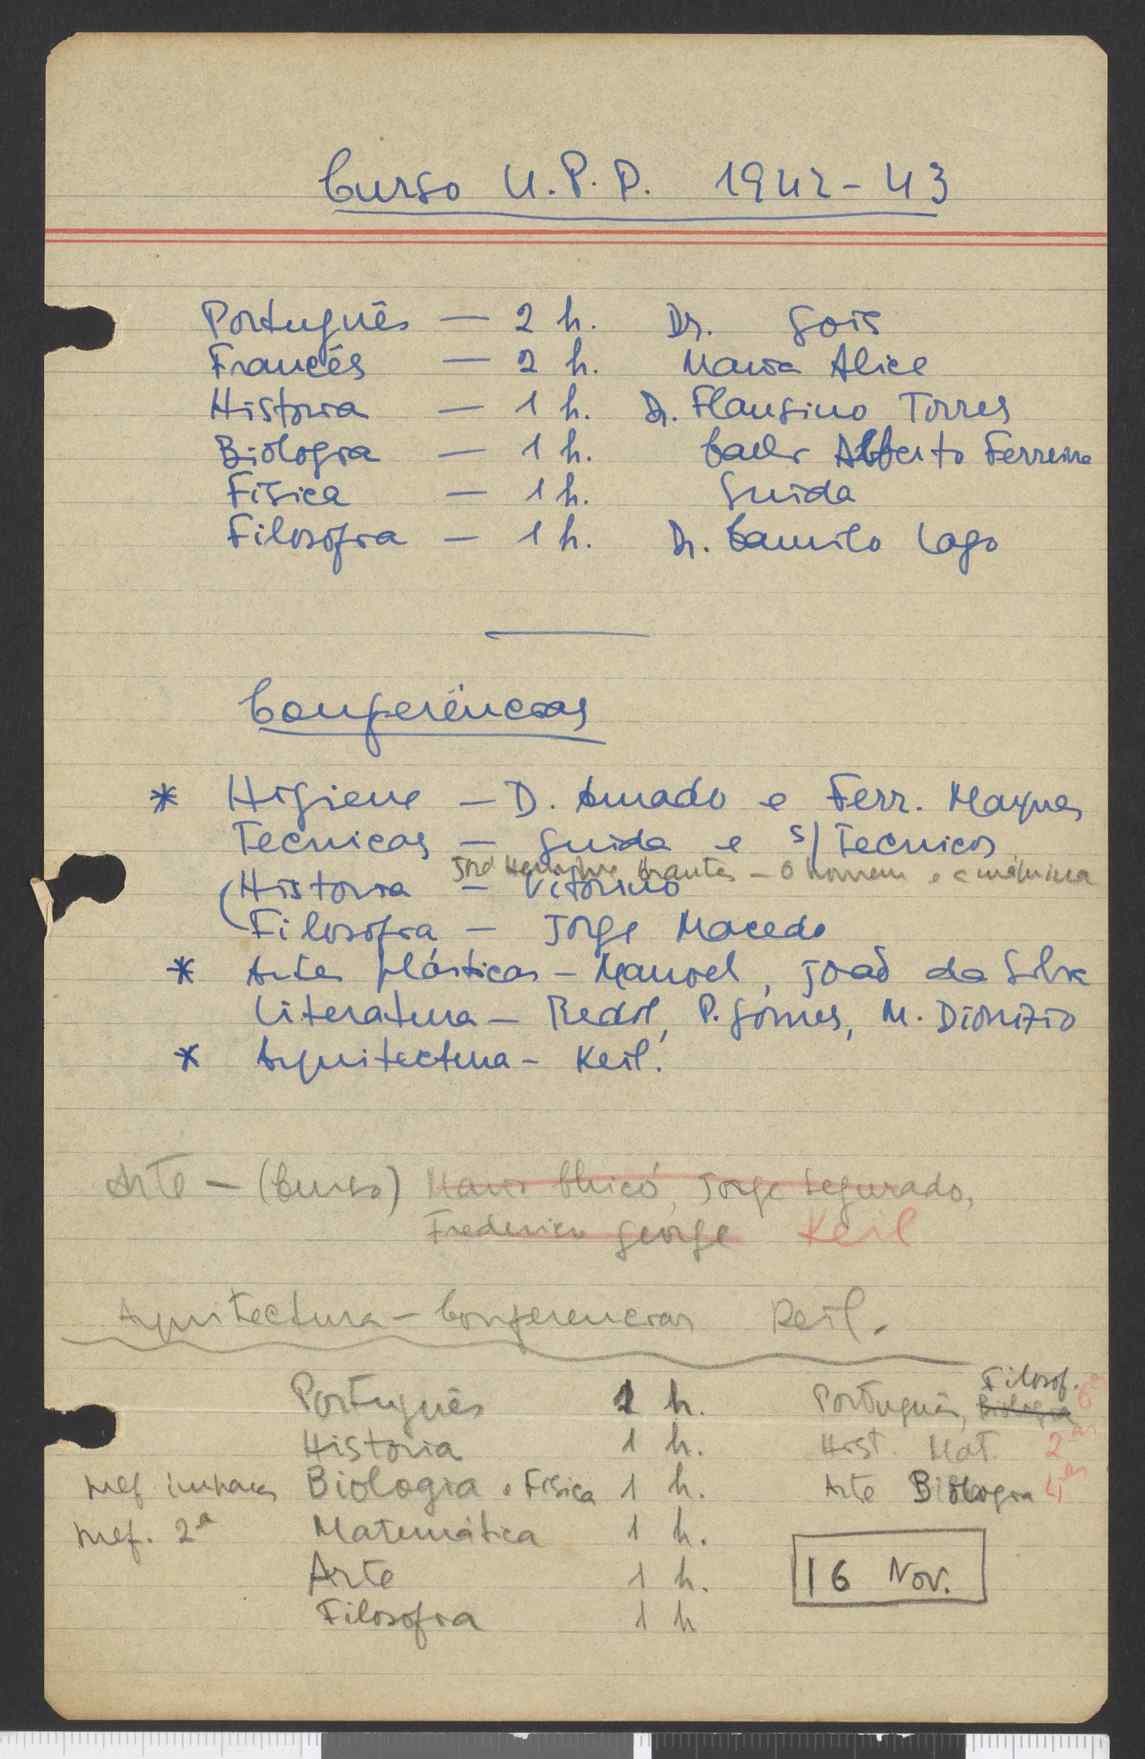 Curso U.P.P. 1942-43
Português — 2 h. Dr. Gois
Francês — 2 h. Maria Alice
Historia — 1 h. Dr. Flausino Torres
Biologia — 1 h. Alberto Ferreira
Fisica — 1 h. Guida
Filosofia — 1 h. Dr. Camilo Lago
Conferências
* Higiene — D. Amado e Ferr. Marques
Tecnicas — Guida e s/ Tecnicos
José Henrique Arantes — O homem e a máquina
(Historia — Vitorino
Filosofia — Jorge Macedo
* Artes plásticas — Manoel, João da Silva
Literatura — Redol, P. Gomes, M. Dionizio
* Arquitectura — Keil.
Arte — (Curso) Mario Chicó, Jorge Segurado,
Frederico George Keil
Arquitectura — Conferencias Keil.
Filosof.
Português 1 h. Português, Biologia 6as
Historia 1 h. Hist. Mat. 2as
Mef. impares Biologia e Fisica 1 h. Arte Biologia 4as
Mef. 2ª Matemática 1 h.
Arte 1 h. 16 Nov.
Filosofia 1 h